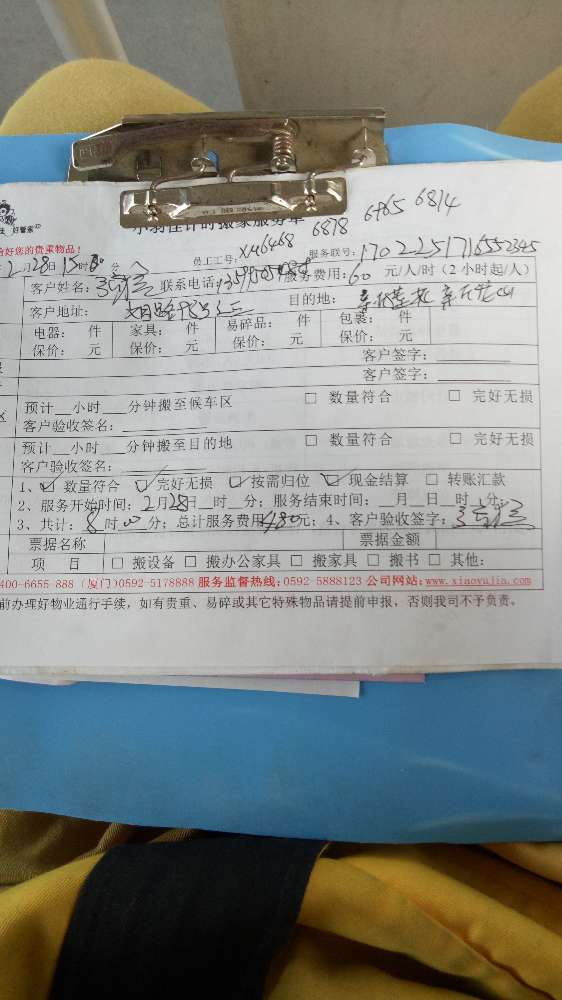 好管家
计时搬家服务单
6878 6765 6814
保管好您的贵重物品!
员工工号: XM6468 服务联号: 1702251716552345
2月28日15时 分
客户姓名: 联系电话: 服务费用: 60 元/人/时 (2小时起/人)
客户地址: 目的地:
电器: 件 家具: 件 易碎品: 件 包裹: 件
保价: 元 保价: 元 保价: 元 保价: 元
客户签字:
客户签字:
预计__小时___分钟搬至候车区 □ 数量符合 □ 完好无损
客户验收签名:
预计__小时___分钟搬至目的地 □ 数量符合 □ 完好无损
客户验收签名:
1、☑ 数量符合 ☑ 完好无损 ☑ 按需归位 ☑ 现金结算 □ 转账汇款
2、服务开始时间: 2月28日__时__分; 服务结束时间: __月__日__时__分。
3、共计: 8 时 00 分; 总计服务费用 480元; 4、客户验收签字:
票据名称 票据金额
项 目 □ 搬设备 □ 搬办公家具 □ 搬家具 □ 搬书 □ 其他:
400-6655-888 (厦门)0592-5178888 服务监督热线: 0592-5888123 公司网站: www.xiaoyujia.com
前办理好物业通行手续, 如有贵重、易碎或其它特殊物品请提前申报, 否则我司不予负责。